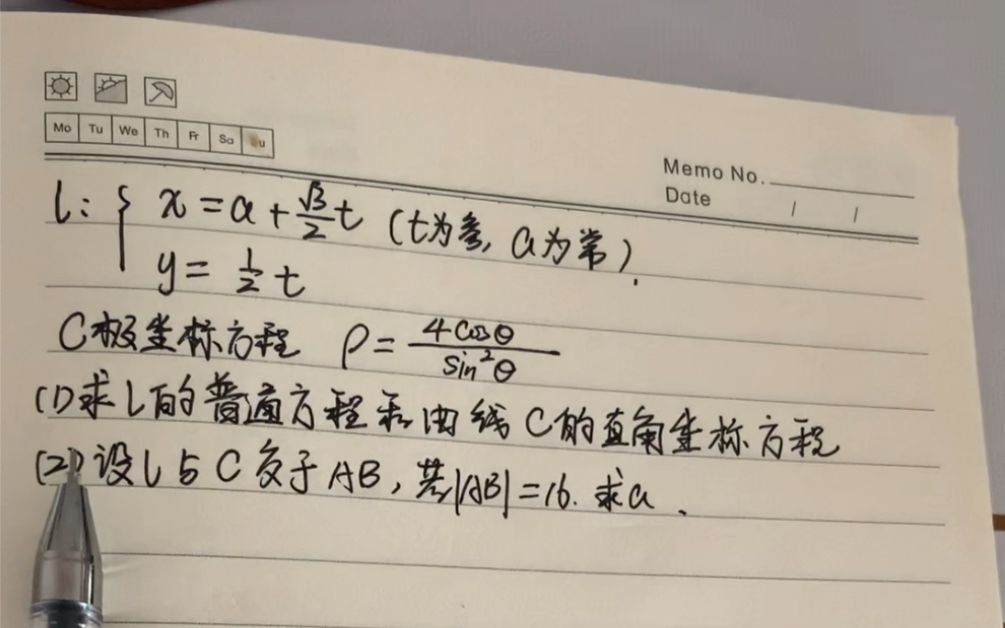 Mo Tu We Th Fr Sa Su
Memo No.
Date / /
l: { x = a + √3/2 t (t为参, a为常).
y = 1/2 t
C极坐标方程 ρ = 4cosθ / sin²θ
(1)求l的普通方程和曲线C的直角坐标方程
(2)设l与C交于AB, 若|AB|=16. 求a.